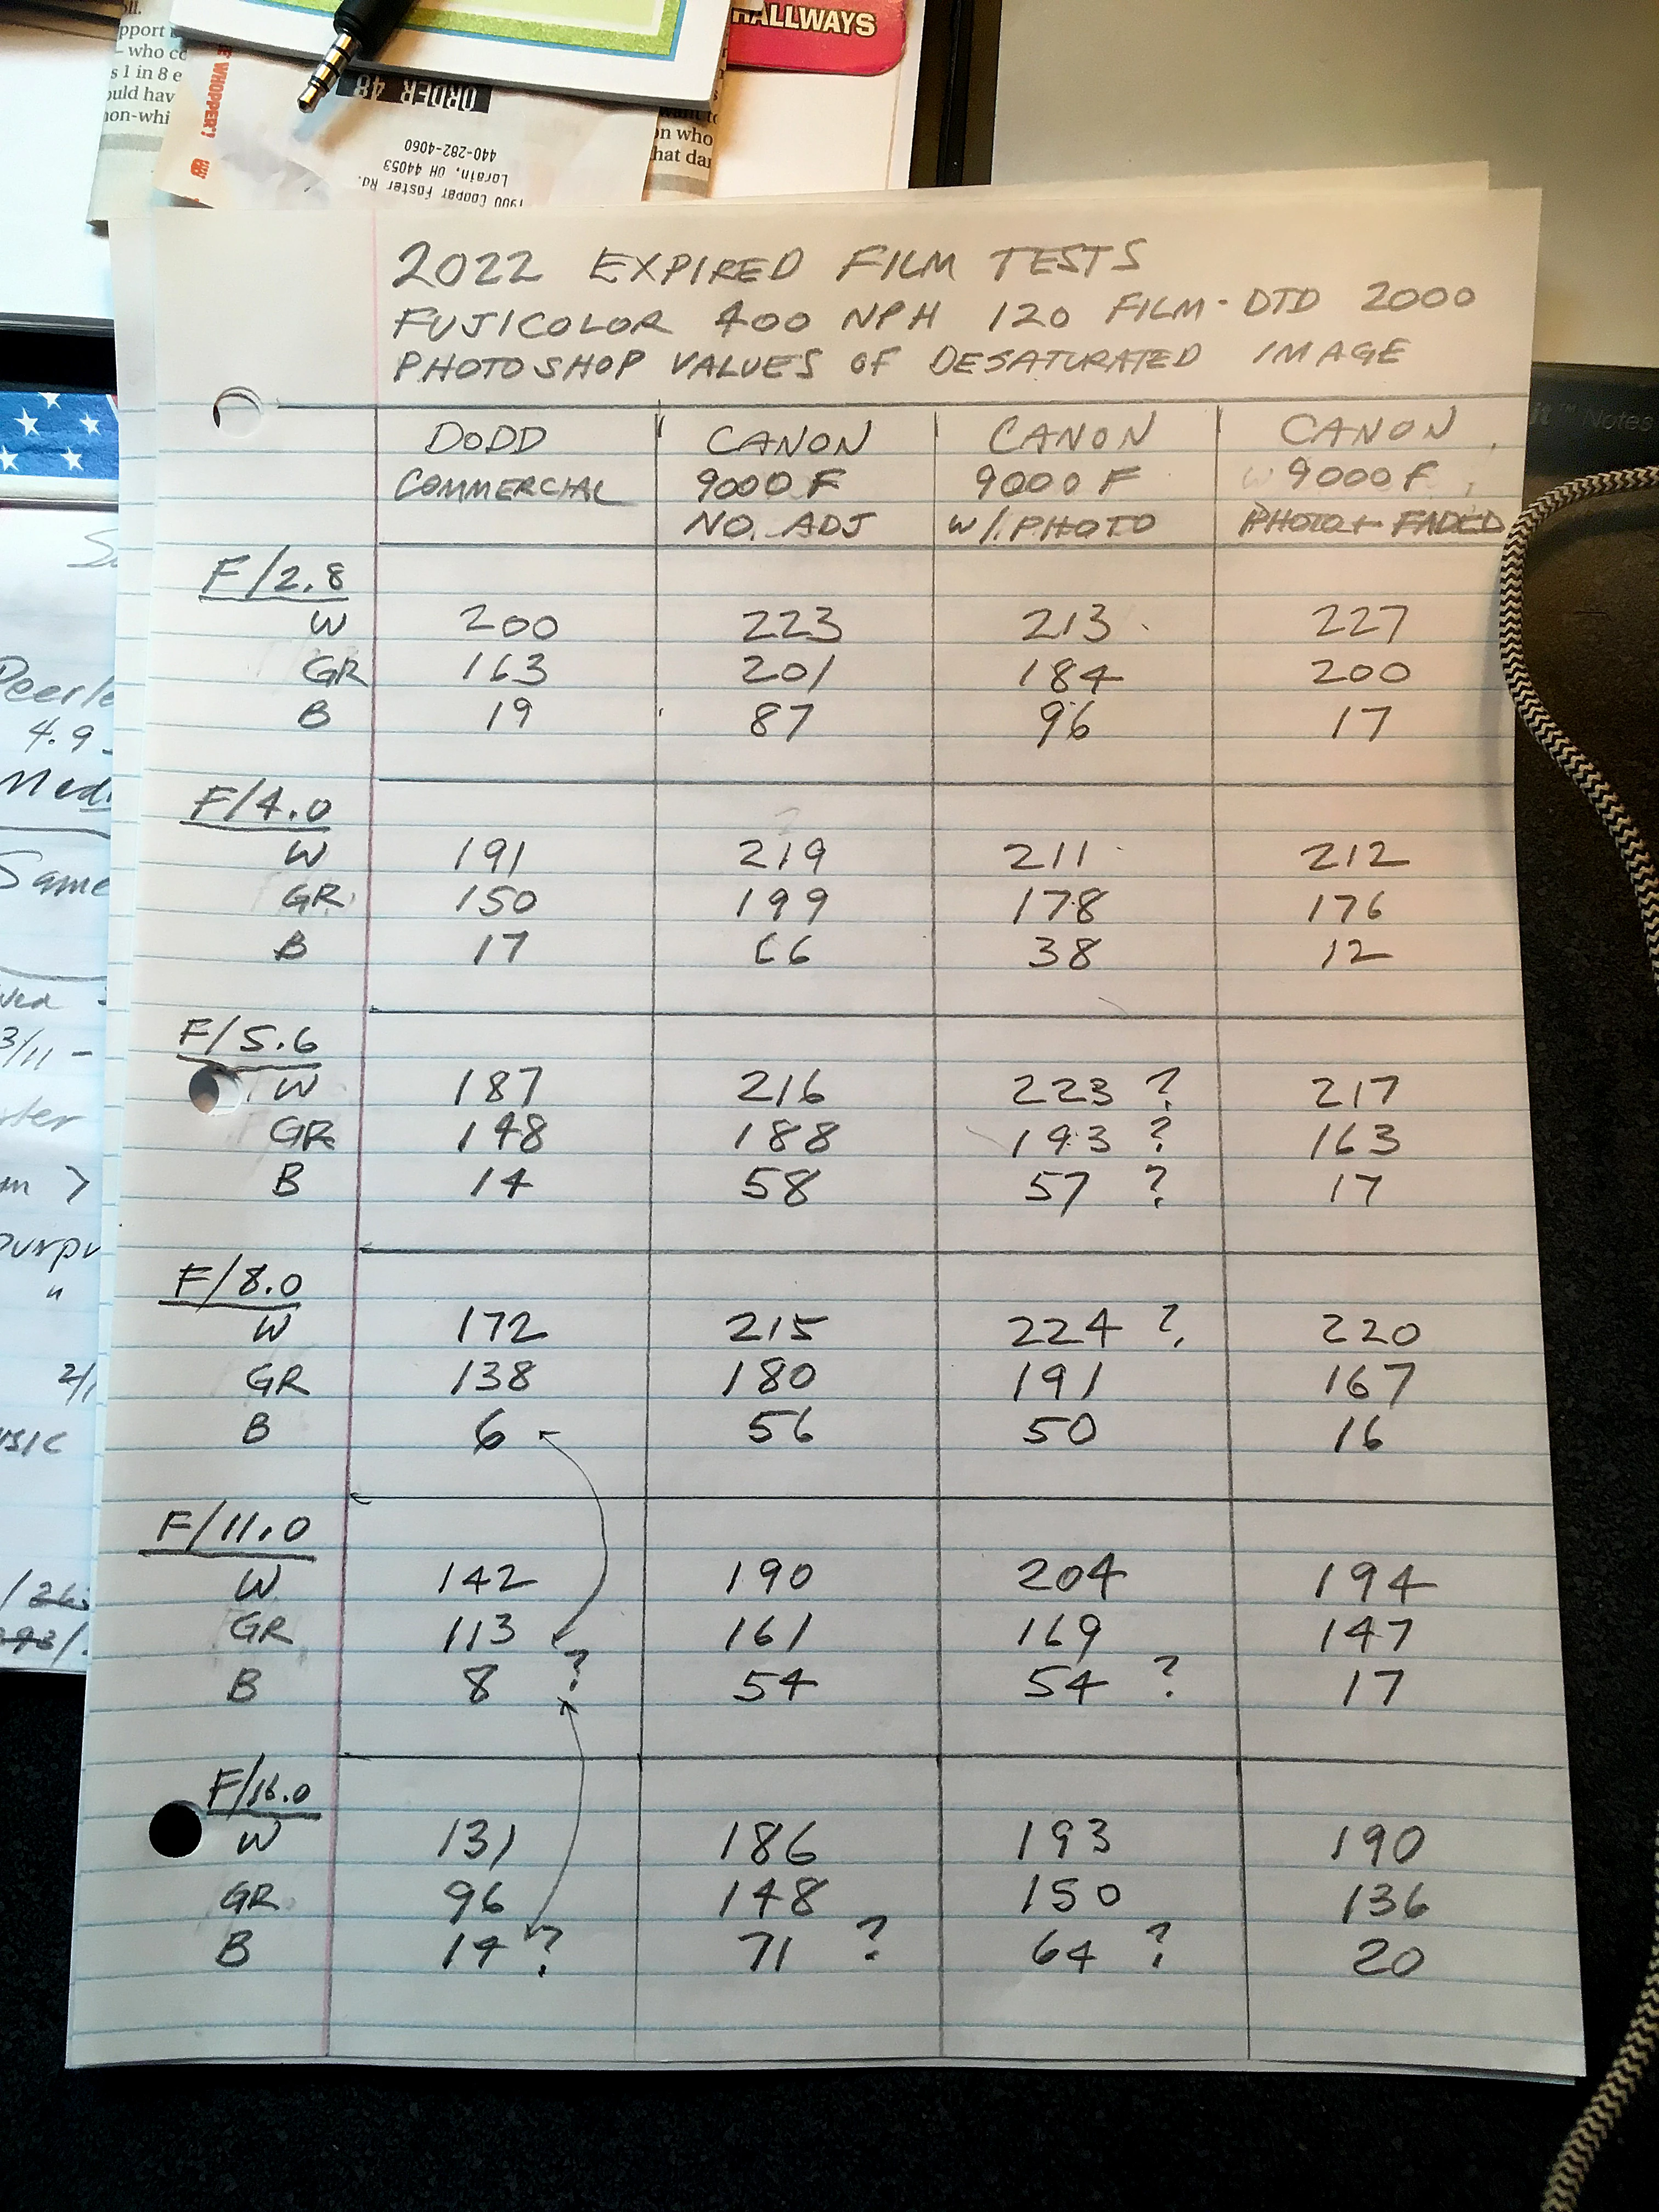 pport
HALLWAYS
– who cc
s 1 in 8 e
ould hav
non-whi
E WHOPPER?
ORDER 48
440-282-4060
Lorain, OH 44053
1900 Cooper Foster Rd.
on who
hat dar
2022 EXPIRED FILM TESTS
FUJICOLOR 400 NPH 120 FILM - DTD 2000
PHOTOSHOP VALUES OF DESATURATED IMAGE
DODD CANON CANON CANON
COMMERCIAL 9000F 9000F 9000F
NO. ADJ W/. PHOTO PHOTO + FADED
it™ Notes
F/2.8
W 200 223 213 227
GR 163 201 184 200
B 19 87 96 17
F/4.0
W 191 219 211 212
GR 150 199 178 176
B 17 66 38 12
F/5.6
W 187 216 223 ? 217
GR 148 188 193 ? 163
B 14 58 57 ? 17
F/8.0
W 172 215 224 ? 220
GR 138 180 191 167
B 6 56 50 16
F/11.0
W 142 190 204 194
GR 113 161 169 147
B 8 ? 54 54 ? 17
F/16.0
W 131 186 193 190
GR 96 148 150 136
B 14 ? 71 ? 64 ? 20
Peerle
4.9
Med
Same
3/11 -
purpu
"